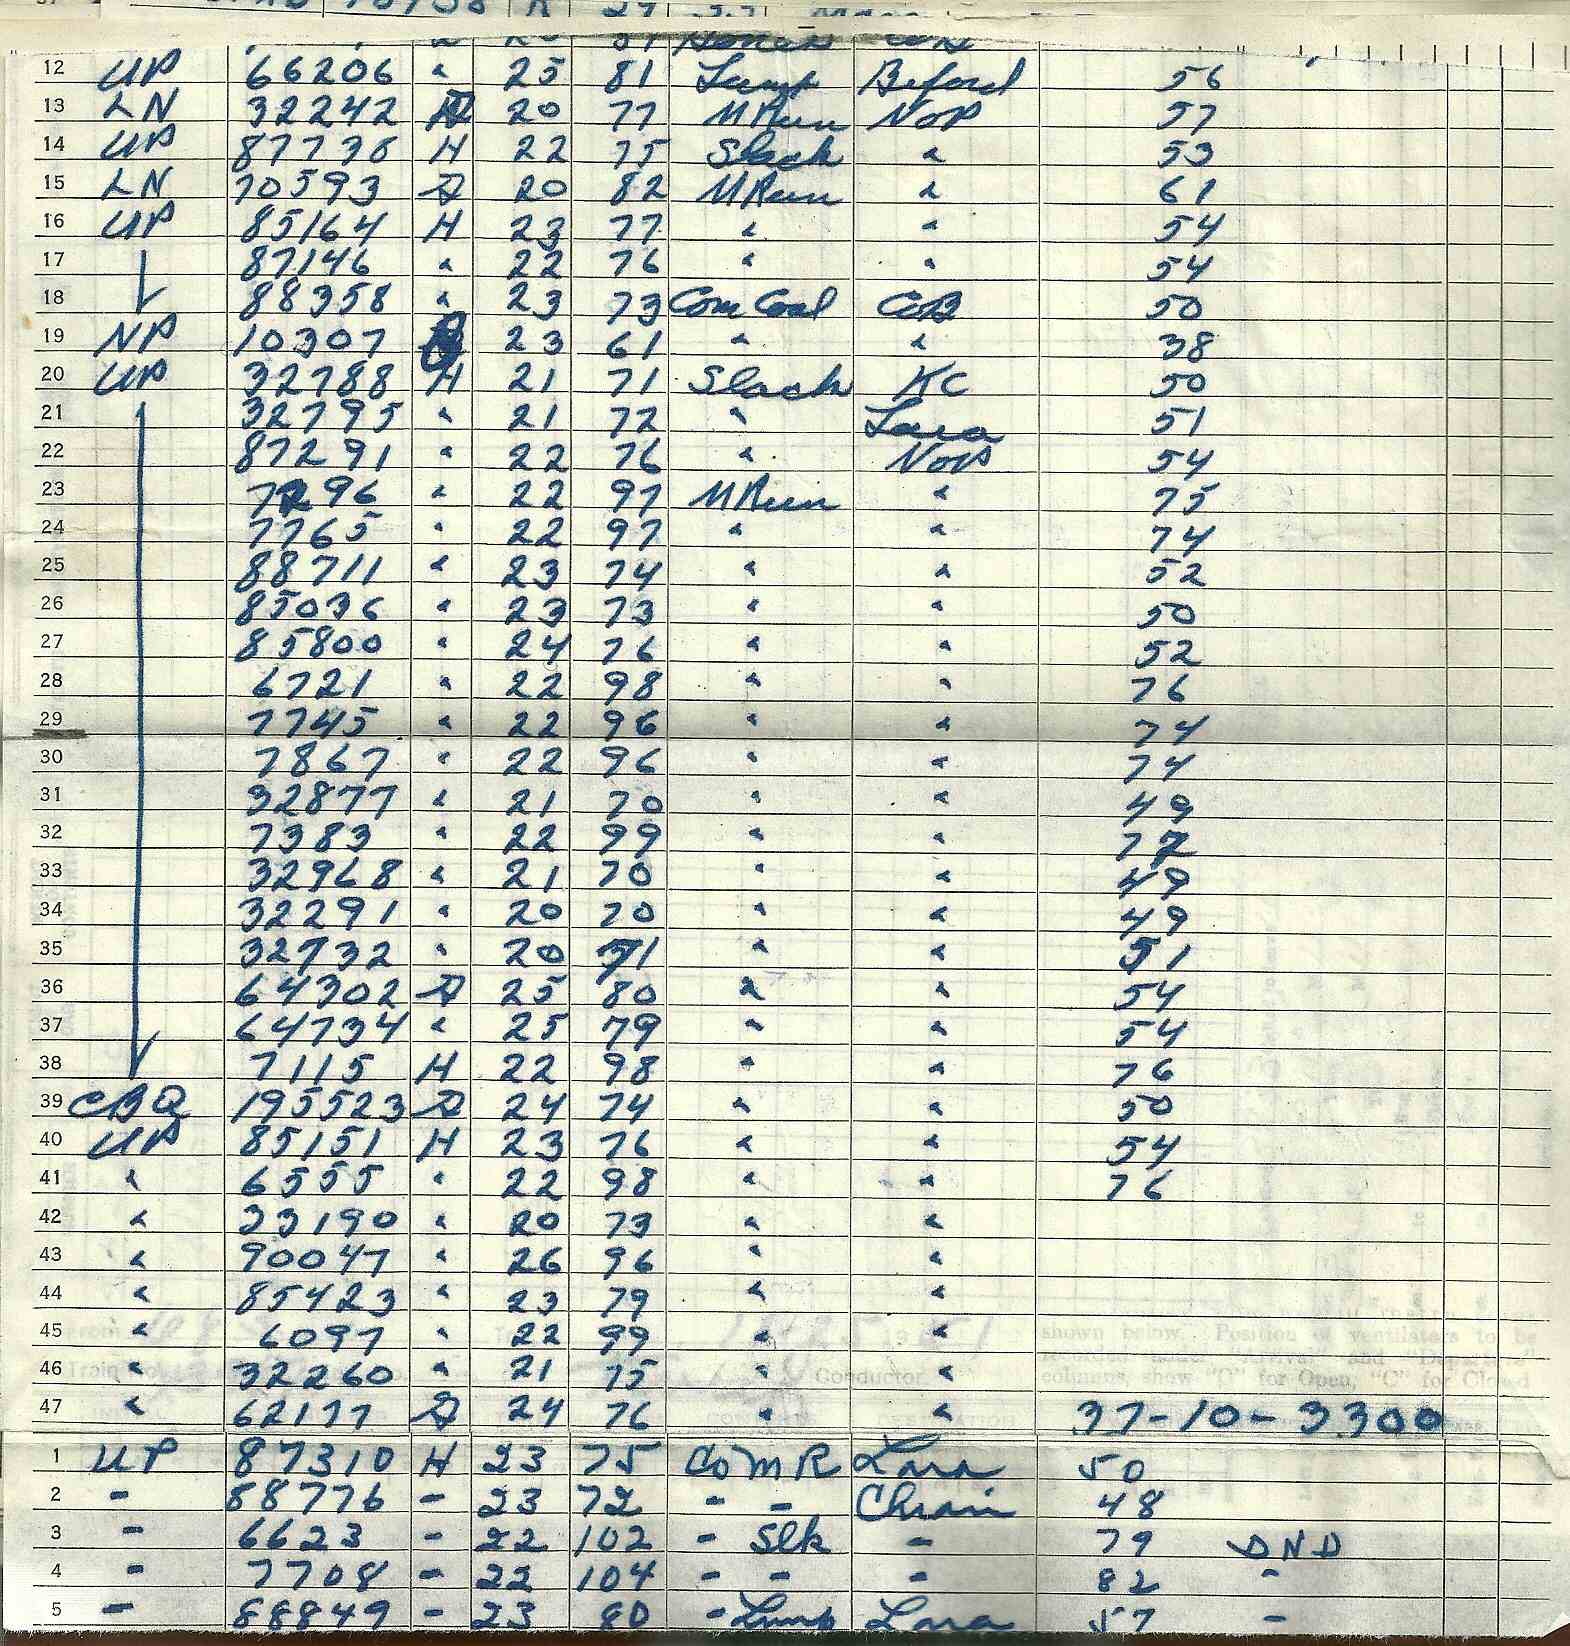 12 UP 66206 " 25 81 Lump Beford 56
13 LN 32242 D 20 77 M Run NOP 57
14 UP 87736 H 22 75 Slack " 53
15 LN 70593 D 20 82 M Run " 61
16 UP 85164 H 23 77 " " 54
17 87146 " 22 76 " " 54
18 88358 " 23 73 Com Coal COB 50
19 NP 10307 23 61 " " 38
20 UP 32788 H 21 71 Slack KC 50
21 32795 " 21 72 " Lara 51
22 87291 " 22 76 " NOP 54
23 7296 " 22 97 M Run " 75
24 7765 " 22 97 " " 74
25 88711 " 23 74 " " 52
26 85036 " 23 73 " " 50
27 85800 " 24 76 " " 52
28 6721 " 22 98 " " 76
29 7745 " 22 96 " " 74
30 7867 " 22 96 " " 74
31 32877 " 21 70 " " 49
32 7383 " 22 99 " " 77
33 32968 " 21 70 " " 49
34 32291 " 20 70 " " 49
35 32732 " 20 71 " " 51
36 64302 D 25 80 " " 54
37 64734 " 25 79 " " 54
38 7115 H 22 98 " " 76
39 CBQ 195523 D 24 74 " " 50
40 UP 85151 H 23 76 " " 54
41 " 6555 " 22 98 " " 76
42 " 33190 " 20 73 " "
43 " 90047 " 26 96 " "
44 " 85423 " 23 79 " "
45 " 6097 " 22 99 " "
46 " 32260 " 21 75 " "
47 " 62177 D 24 76 " " 37-10-3300
1 UP 87310 H 23 75 Com R Lara 50
2 - 88776 - 23 72 - - 48
3 - 6623 - 22 102 - Slk - 79 DND
4 - 7708 - 22 104 - - - 82 -
5 - 88849 - 23 80 - Lump Lara 57 -